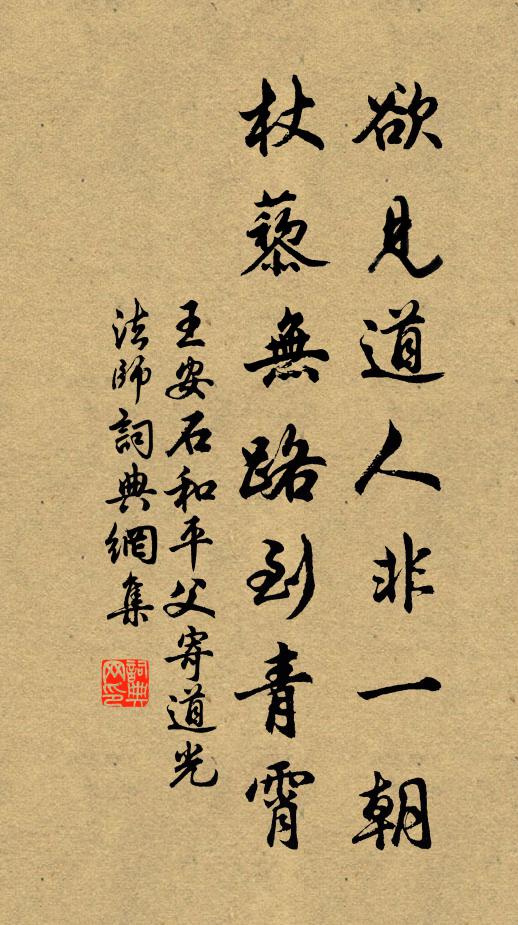 欲見道人非一朝
杖藜無路到青霄
王安石和平父寄道光
法師詞典網集
詞典
网印